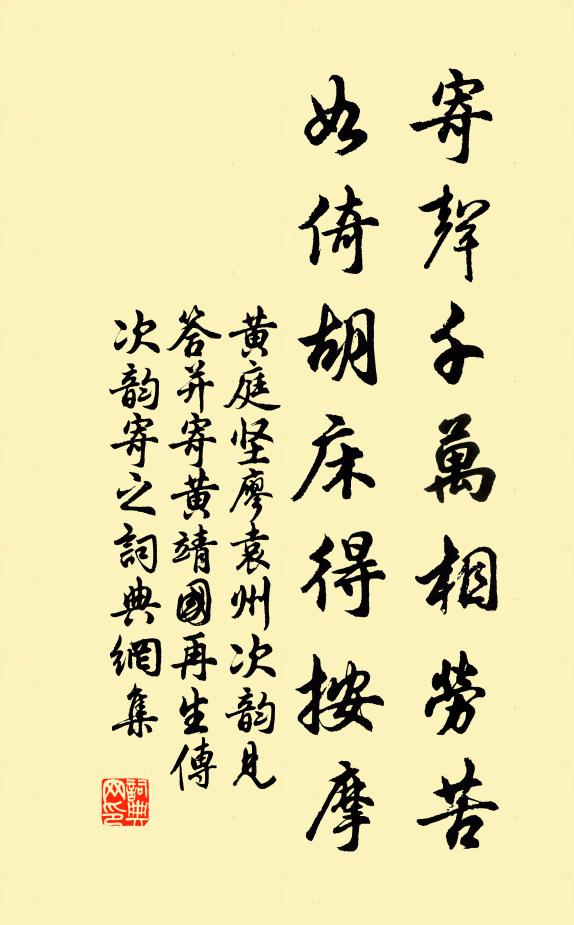 寄聲千萬相勞苦
如倚胡床得按摩
黄庭坚廖袁州次韵見
答并寄黄靖國再生傳
次韵寄之詞典網集
詞典網印